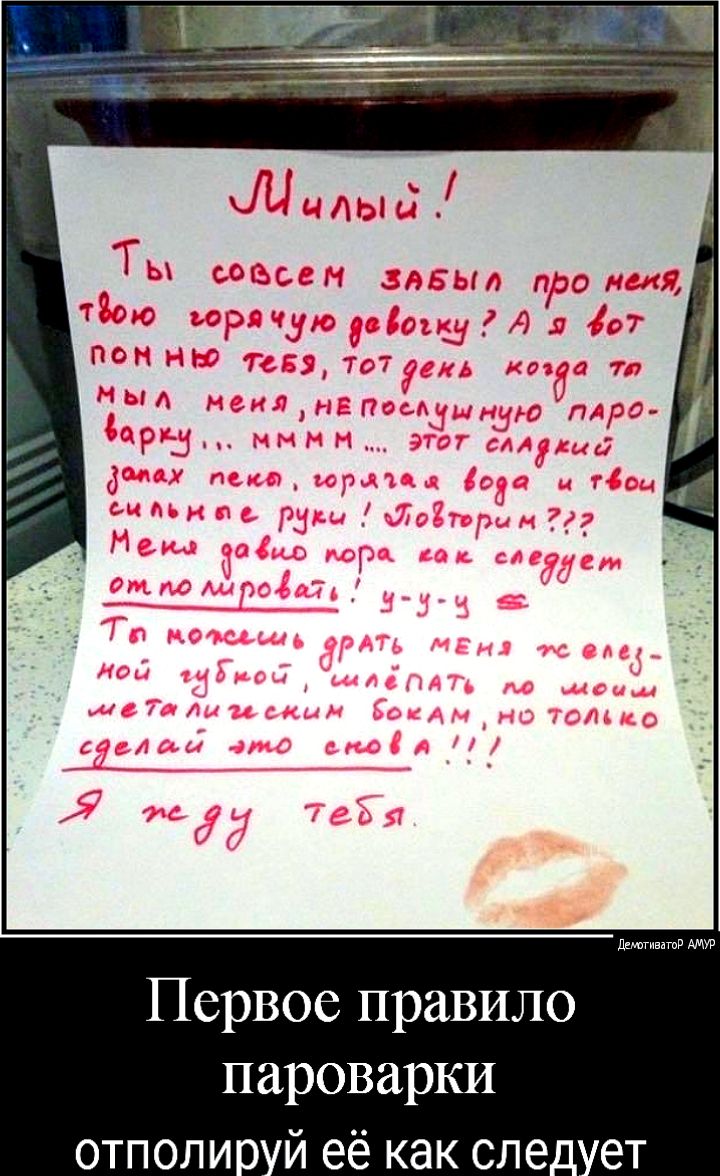 Милый!
Ты совсем забыл про меня,
твою горячую девочку? А я вот
помню тебя, тот день когда ты
мыл меня, непослушную паро-
варку... мммм.... этот сладкий
запах пены, горячая вода и твои
сильные руки! Повторим???
Меня давно пора как следует
отполировать! у-у-у
Ты можешь драть меня желез-
ной губкой, шлёпать по моим
металическим бокам, но только
сделай это снова!!!
Я жду тебя.
ДемотиваторР АМУР
Первое правило
пароварки
отполируй её как следует